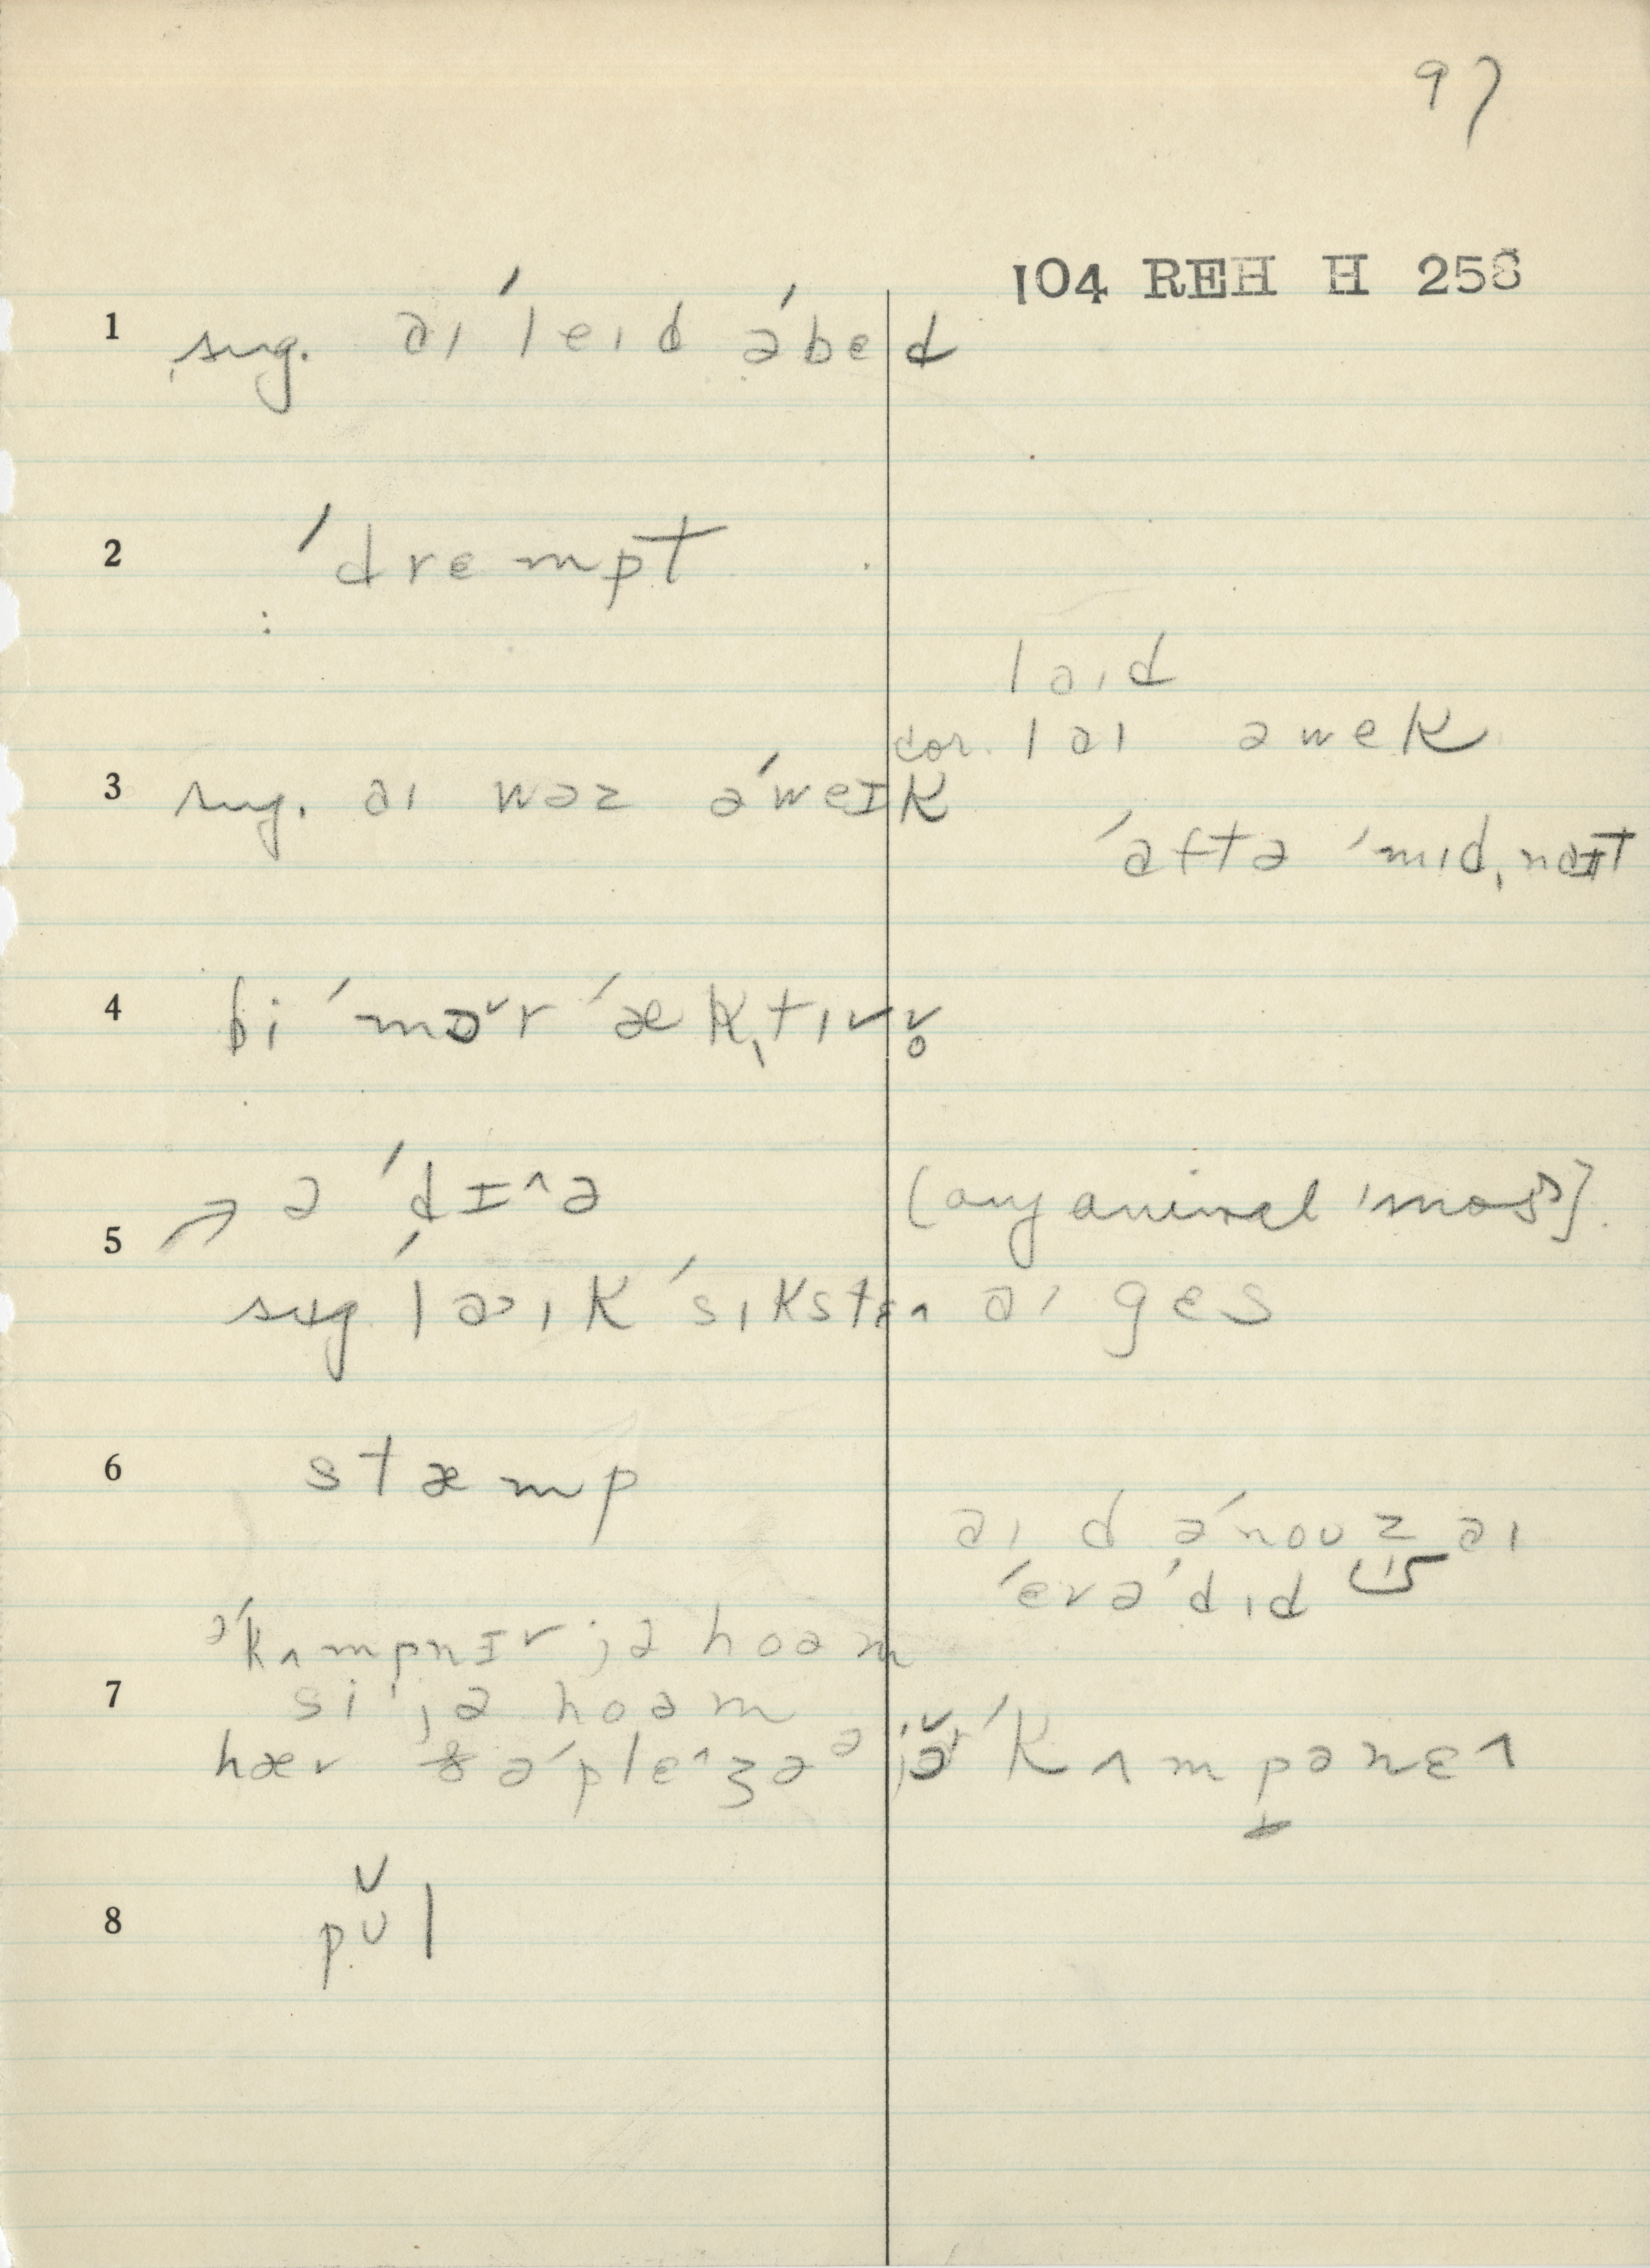 97
104 REH H 258
1 sug. aɪ ˈleɪd əˈbed
2 ˈdrempt
laɪd
cor. laɪ awek
3 sug. aɪ wəz əˈweɪk
ˈaftə ˈmɪdˌnaɪt
4 bi ˈmɔ˅r ˈækˌtɪv v̥
ə ˈdɪ^ə (any animal 'most).
5
sug laɪk ˈsɪkstɛ^ aɪ ges
6 stæmp
aɪ d əˈnoʊz aɪ
ˈevə ˈdɪd
əˈkʌmpnɪv jə hoəm
7 si jə hoəm
hæv ə ˈple^ʒə ə jə ˈkʌmpənɛ^
8 pʊ˅l